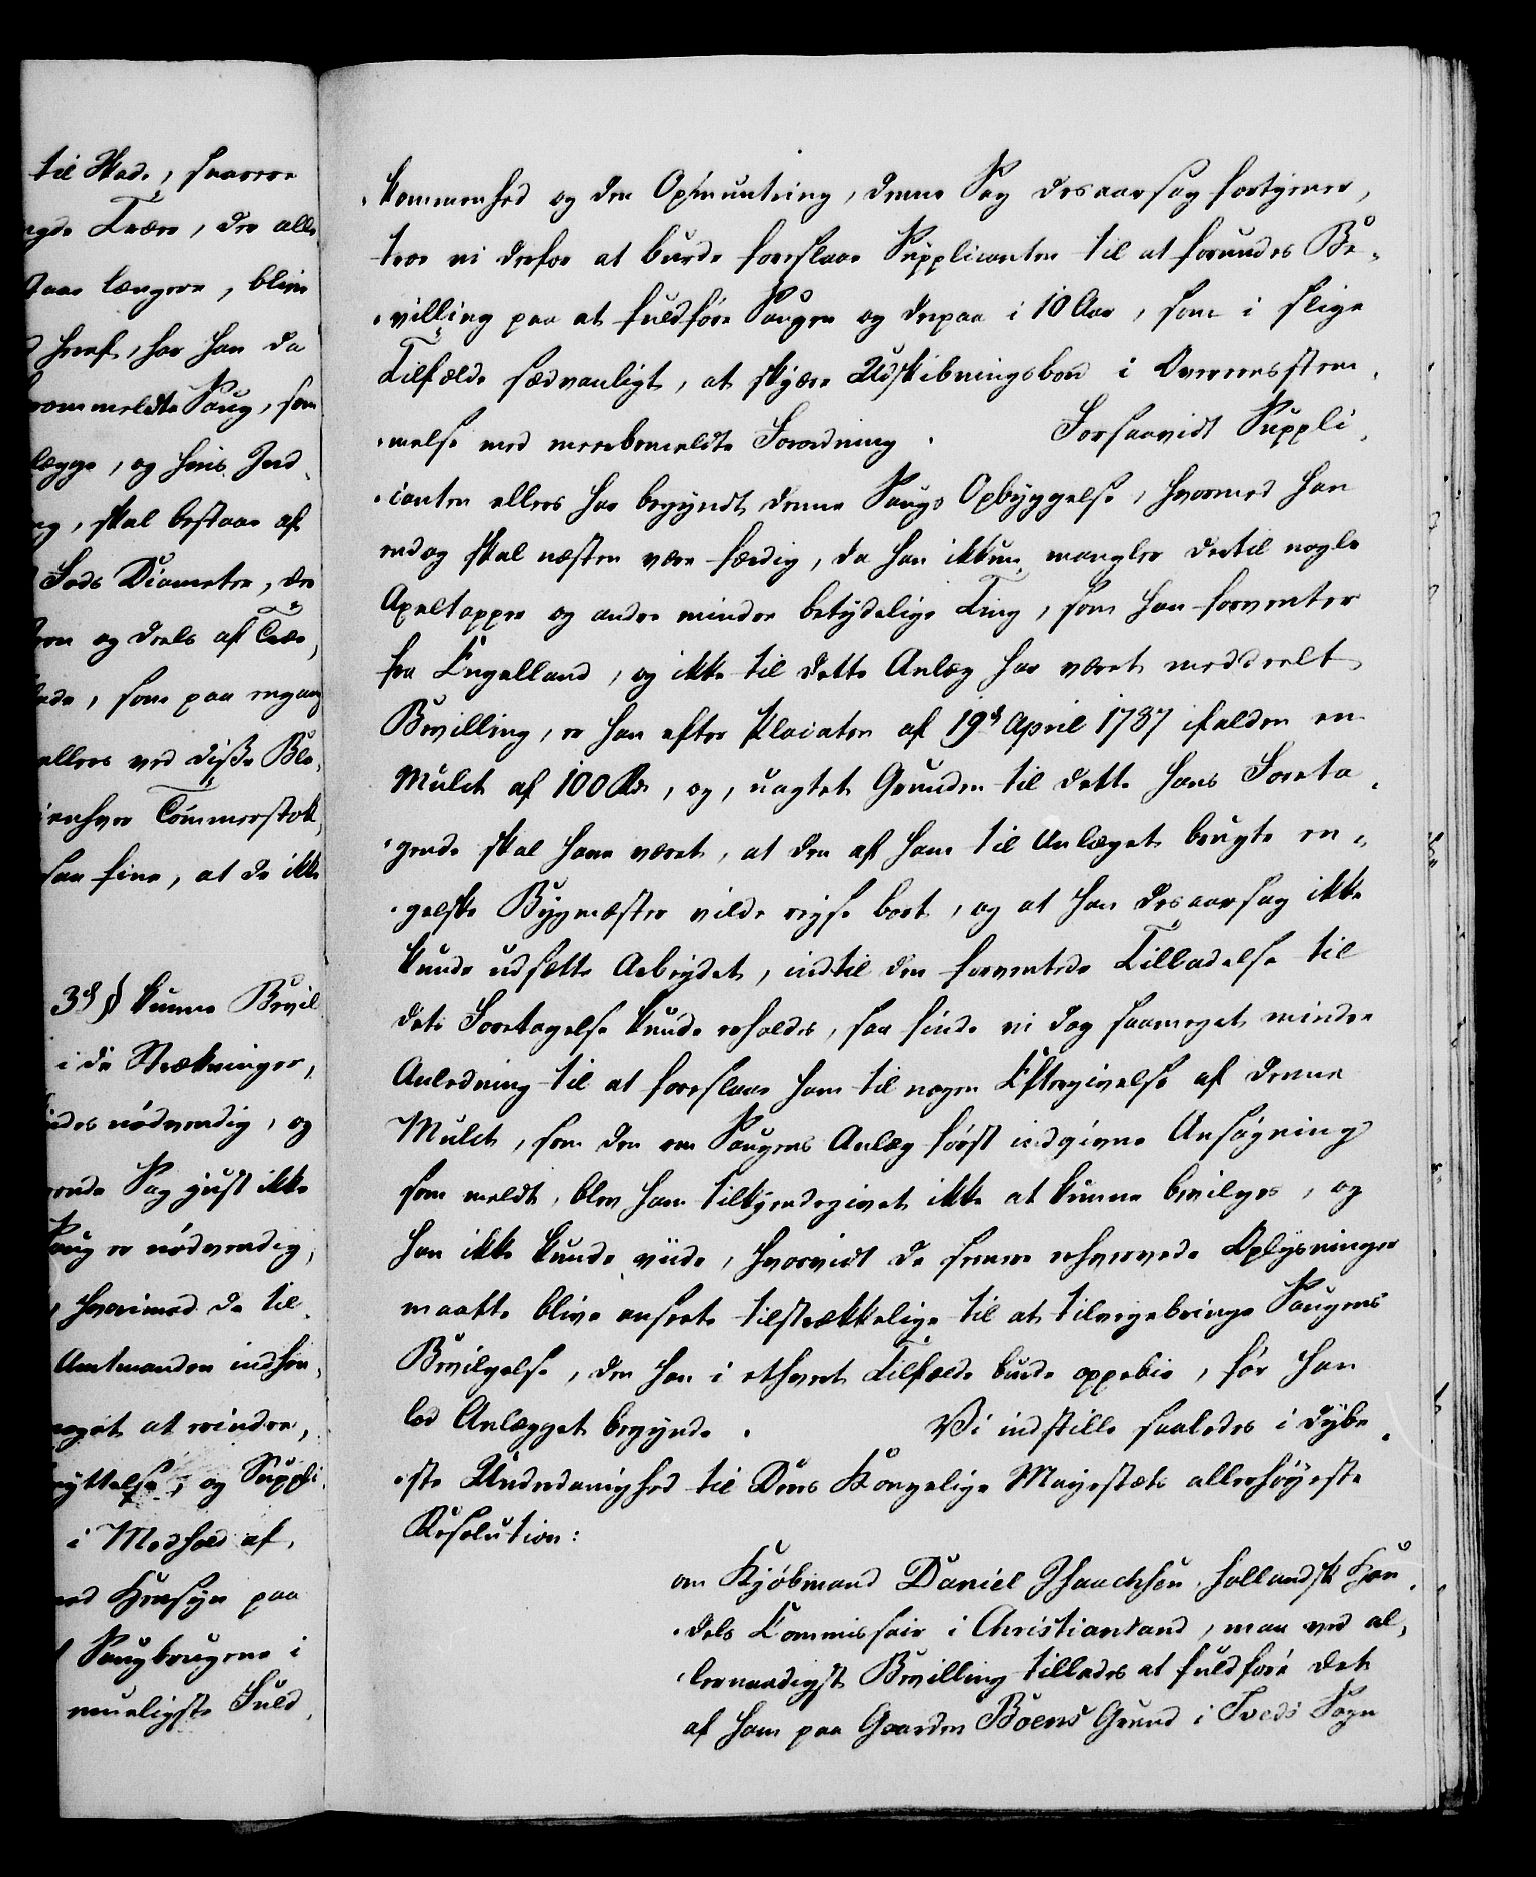 til Skade, saavere
Træer, der alle
længere, blive
heraf, har han da
ommeldte Saug, som
lægge, og hvis Ind-
skal bestaae af
Fods Diameter, der
og deels af Træe,
som paa engang
ellers ved disse Ble-
enhver Tømmerstok,
saa fine, at de ikke
3d § kunne Bevil
i de Strækninger,
nødvendig, og
Sag just ikke
Saug er nødvendig,
hvorimod de til-
Amtmanden indhen-
at erindre,
og Suppli-
i Medhold af
Hensyn paa
Saugbrugene i
mueligste Fuld-
kommenhed og den Opmuntring, denne Sag desaarsag fortjener,
troe vi derfor at burde foreslaae Supplicanten til at forundes Be-
-villing paa at fuldføre Saugen og derpaa i 10 Aar, som i slige
Tilfælde sædvanligt, at skjære Udskibningsbord i Overeensstem-
-melse med meerbemeldte Forordning. Forsaavidt Suppli-
-canten ellers har begyndt denne Saugs Opbyggelse, hvormed han
endog skal næsten være færdig, da han ikkun mangler dertil nogle
Axeltapper og andre mindre betydelige Ting, som han forventer
fra Engelland, og ikke til dette Anlæg har været meddeelt
Bevilling, er han efter Placaten af 19d April 1787 ifalden en
Mulct af 100 Rd, og, uagtet Grunden til dette hans Foreta-
-gende skal have været, at den af ham til Anlæget brugte en-
-gelske Bygmæster vilde rejse bort, og at han desaarsag ikke
kunde udsætte Arbeydet, indtil den forventede Tilladelse til
dets Foretagelse kunde erholdes, saa finde vi dog saameget mindre
Anledning til at foreslaae ham til nogen Eftergivelse af denne
Mulct, som den om Saugens Anlæg først indgivne Ansøgning
som meldt, blev ham tilkjendegivet ikke at kunne bevilges, og
han ikke kunde viide, hvorvidt de senere erhvervede Oplysninger
maatte blive ansete tilstrækkelige til at tilvejebringe Saugens
Bevilgelse, den han i ethvert Tilfælde burde oppebie, før han
lod Anlægget begynde. Vi indstille saaledes i dybe-
-ste Underdanighed til Deres Kongelige Majestæts allerhøjeste
Resolution:
om Kjøbmand Daniel Isaachsen, hollandsk Han-
-dels Kommissair i Christiansand, maa ved al-
-lernaadigst Bevilling tillades at fuldføre det
af ham paa Gaarden Boens Grund i Tveds Sogn